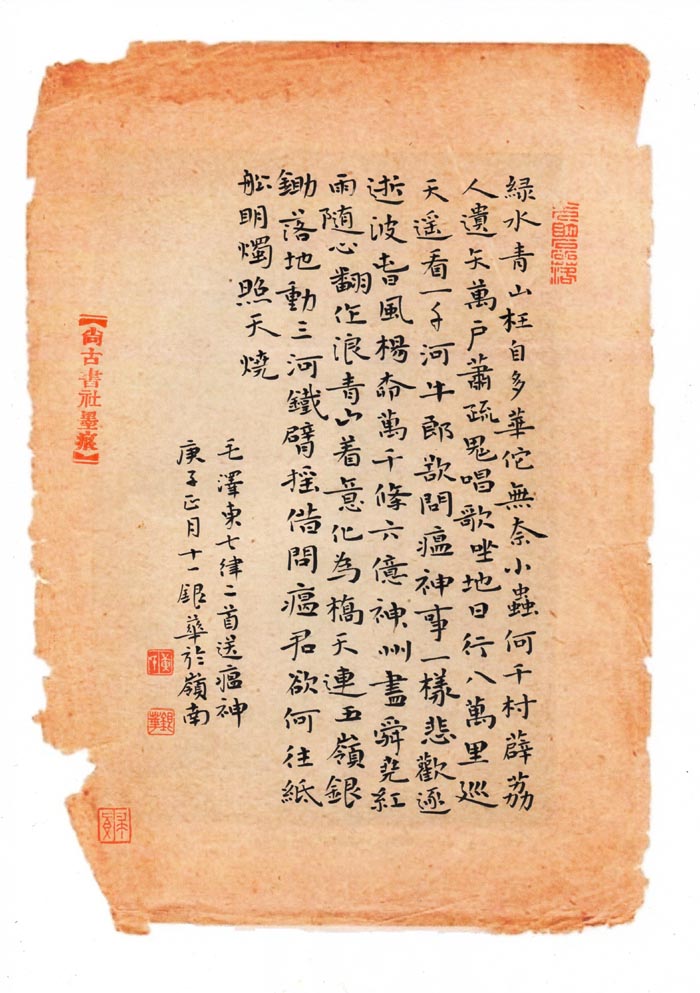 綠水青山枉自多華佗無奈小蟲何千村薜荔
人遺矢萬戶蕭疏鬼唱歌坐地日行八萬里巡
天遥看一千河牛郎欲問瘟神事一樣悲歡逐
逝波春風楊柳萬千條六億神州盡舜堯紅
雨隨心翻作浪青山着意化為橋天連五嶺銀
鋤落地動三河鐵臂摇借問瘟君欲何往紙
船明燭照天燒
毛澤東七律二首送瘟神
庚子正月十一銀華於嶺南
銀華
【尚古書社墨痕】